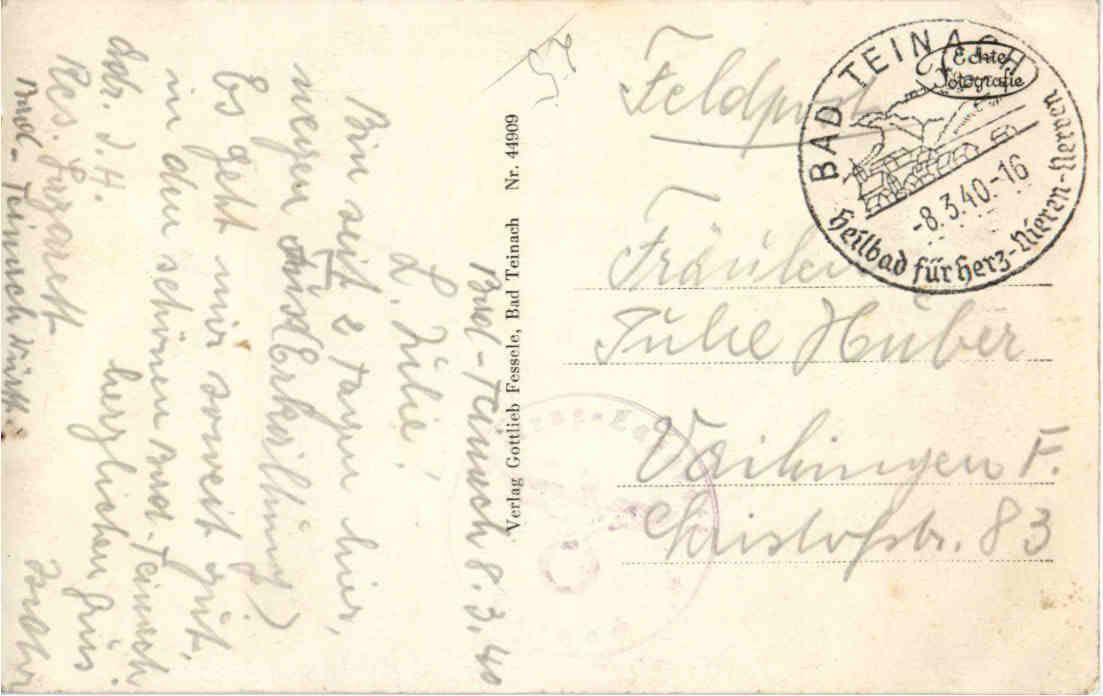 Bad-Teinach 8.3.40
L. Julie!
Bin seit 2 Tagen hier,
wegen Erkältung)
Es geht mir soweit gut,
in dem schönen Bad-Teinach.
herzlichen Grus
Adr. J. H.
Res. Lazarett
Bad-Teinach Württ.
Verlag Gottlieb Fessele, Bad Teinach Nr. 44909
Feldpost
Fräulein
Julie Huber
Vaihingen F.
Christofstr. 83
BAD TEINACH
Echte
Fotografie
-8.3.40.-16
Heilbad für Herz-Nieren-Nerven